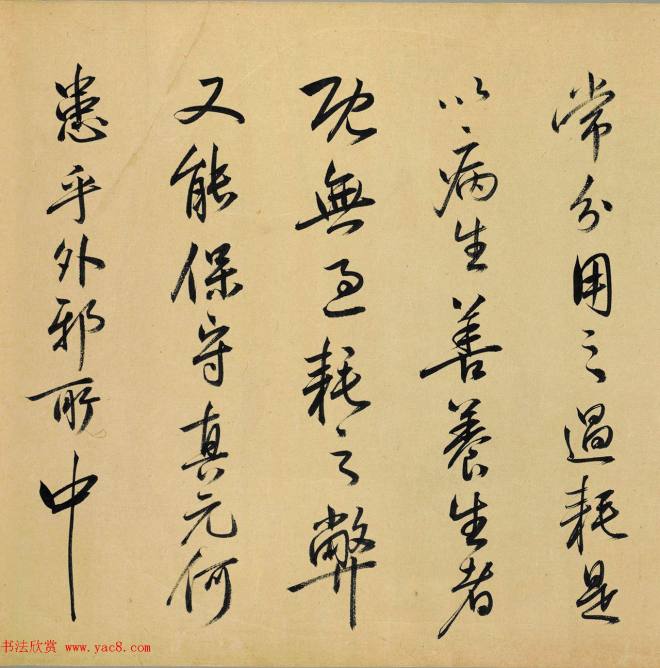 常分用之過耗是
以病生善養生者
既無過耗之弊
又能保守真元何
患乎外邪所中
书法欣赏 www.yac8.com